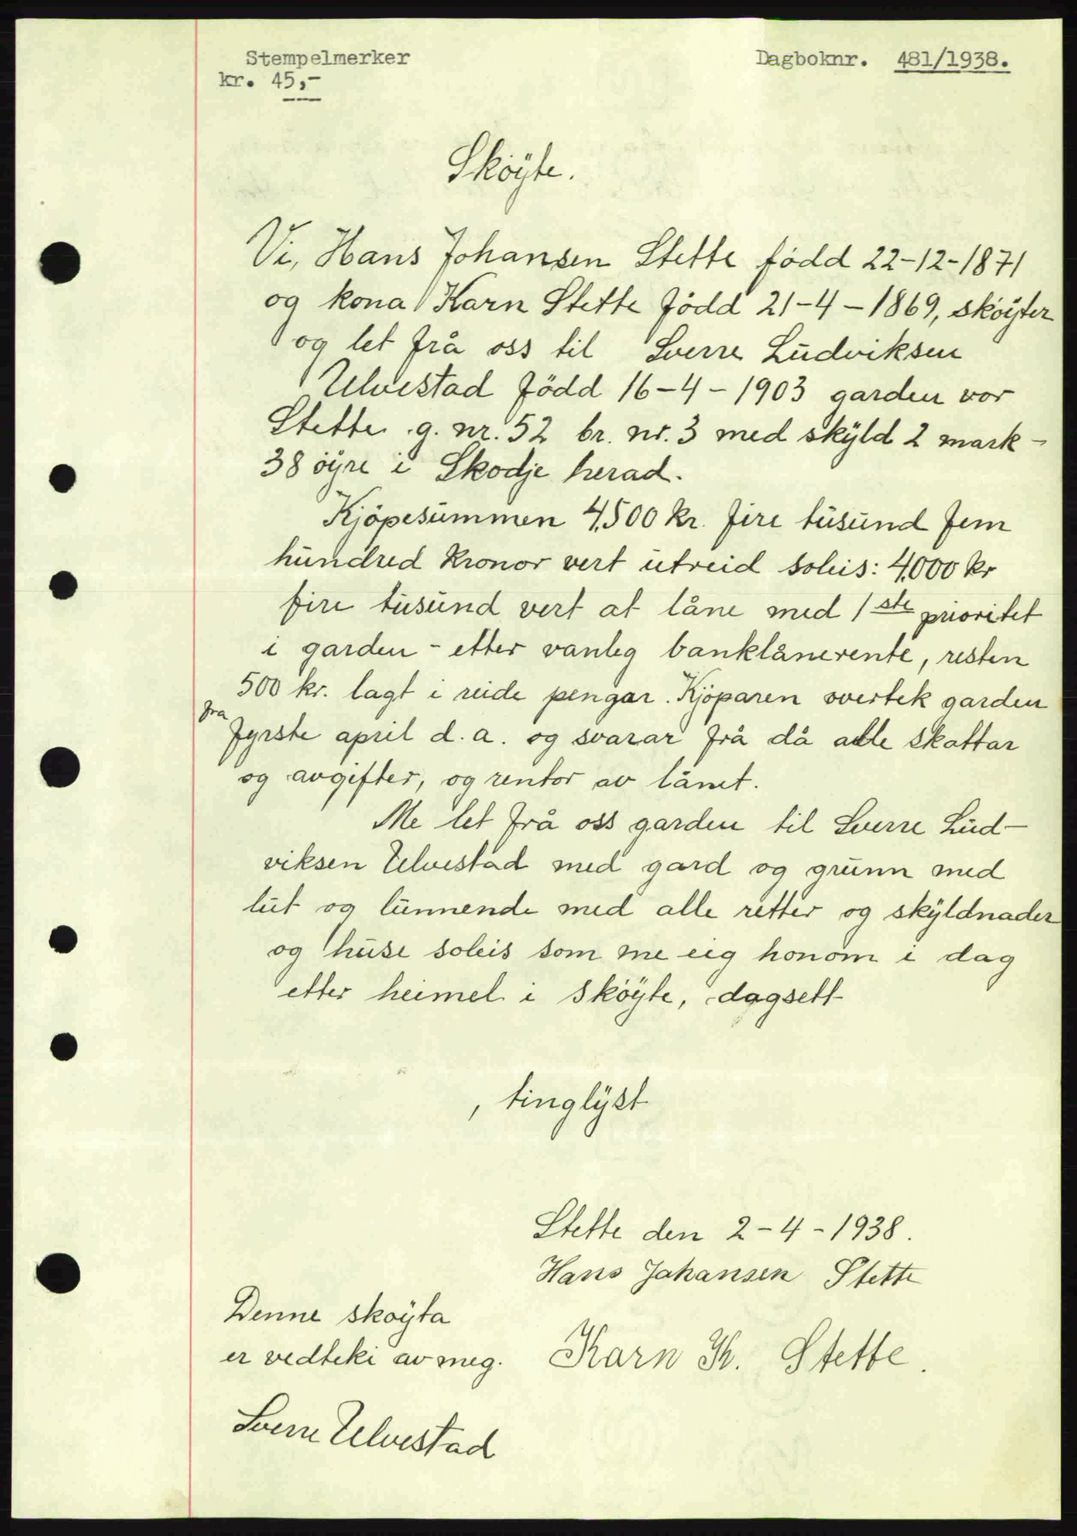 Stempelmerker
kr. 45,-
Dagboknr. 481/1938.
Sköÿte.
Vi, Hans Johansen Stette född 22-12-1871
og kona Karn Stette född 21-4-1869, sköÿter
og let frå oss til Sverre Ludviksen
Ulvestad född 16-4-1903 garden vor
Stette g. nr. 52 br. nr. 3 med skÿld 2 mark -
38 öÿre i Skodje herad.
Kjöpesummen 4,500 kr. fire tusund fem
hundred kronor vert utreid soleis: 4,000 kr
fire tusund vert at låne med 1ste prioritet
i garden - etter vanleg banklånerente, resten
500 kr. lagt i reide pengar. Kjöparen overtek garden
fra
fyrste april d. a. og svarar frå då alle skattar
og avgifter, og rentor av lånet.
Me let frå oss garden til Sverre Lud-
viksen Ulvestad med gard og grunn med
lut og lunnende med alle retter og skÿldnader
og huse soleis som me eig honom i dag
etter heimel i sköÿte, dagsett
, tinglÿst
Stette den 2-4-1938.
Hans Johansen Stette
Denne skoÿta
er vedteki av meg. Karn K. Stette.
Sverre Ulvestad